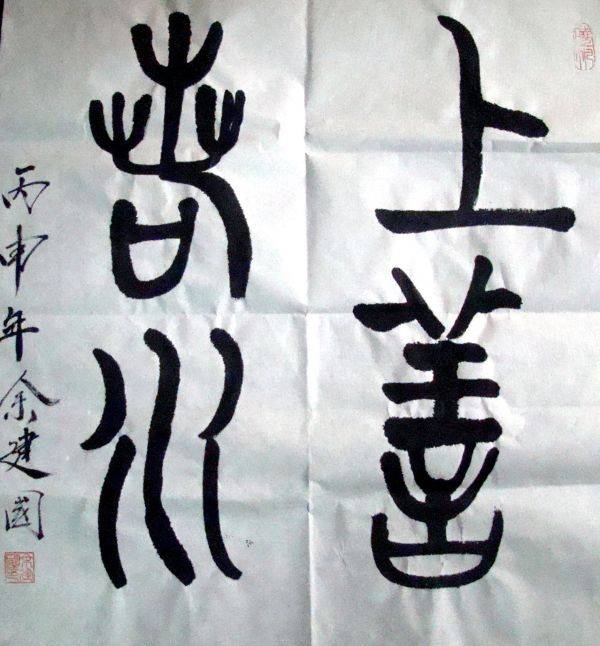 上善
若水
丙申年余建国